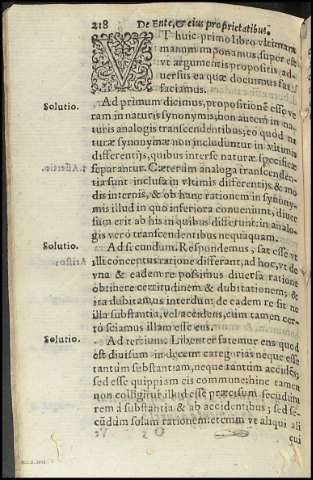 218 De Ente, & eius proprietatibus.
VT huic primo libro vltimam
manum imponamus, super est
vt argumentis propositis, ad-
uersus ea quæ documus satis-
faciamus.
Solutio. Ad primum dicimus, propositionẽ esse ve
ram in naturis synonymis, non autem in na-
turis analogis transcendentibus, eo quòd na
turæ synonymæ non includuntur in vltimis
differentijs, quibus inter se naturæ specificæ
1. Assertio. separantur. Cæterùm analoga transcenden-
tia sunt inclusa in vltimis differentijs & mo
dis internis, & ob hanc rationem in synony-
mis illud in quo inferiora conueniunt, diuer
sum erit ab his in quibus differunt: in analo
gis verò transcendentibus nequaquam.
Solutio. Ad secundum. Respondemus, sat esse vt
illi conceptus ratione differant, ad hoc, vt de
vna & eadem re possimus diuersa ratione
obtinere certitudinem & dubitationem, &
ita dubitamus interdum de eadem re sit ne
illa substantia, vel accidens, cum tamen cer-
tò sciamus illam esse ens.
Solutio. Ad tertium. Libenter fatemur ens quod
est diuisum in decem categorias neque esse
tantùm substantiam, neque tantùm accidẽs,
sed esse quippiam eis commune: hinc tamen
non colligitur illud esse præcisum secundùm
rem à substantia & ab accidentibus; sed se-
cũdùm solam rationem: etenim vt aliqui ali
qui